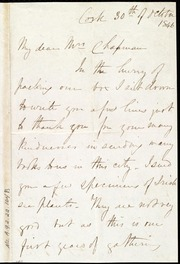 Cork 30th of October
1846
My dear Mrs Chapman
In the hurry of
packing our box I sit down
to write you a few lines just
to thank you for your many
kindnesses in sending many
to us in this city. I send
you a few specimens of Irish
sea plants. They are not very
good but as this is our
first years of gathering